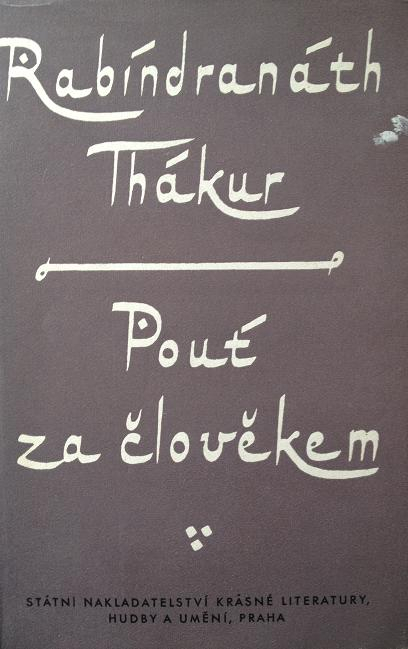 Rabíndranáth
Thákur
Pouť
za člověkem
STÁTNÍ NAKLADATELSTVÍ KRÁSNÉ LITERATURY,
HUDBY A UMĚNÍ, PRAHA